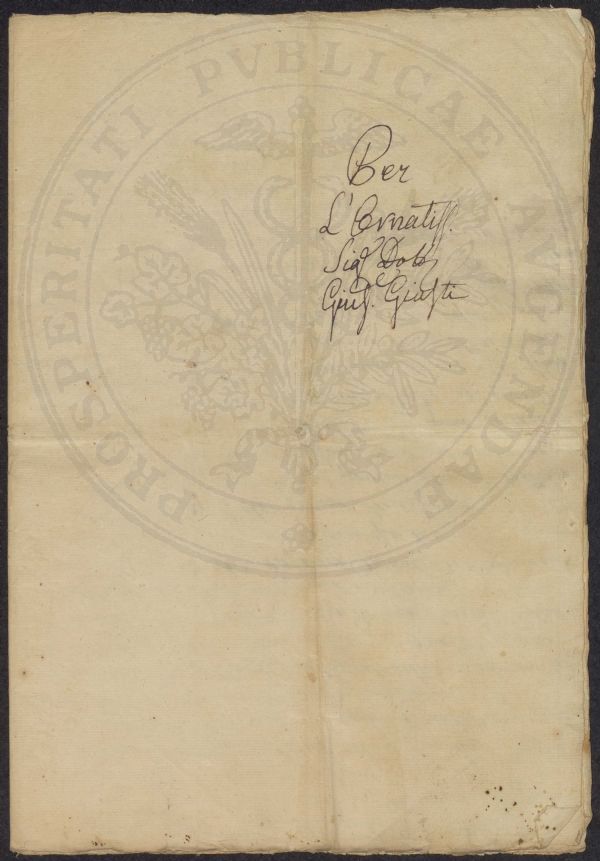 PROSPERITATI PVBLICAE AVGENDAE
Per
L'Ornatiss.
Sigr Dotr
Gius. Giusti